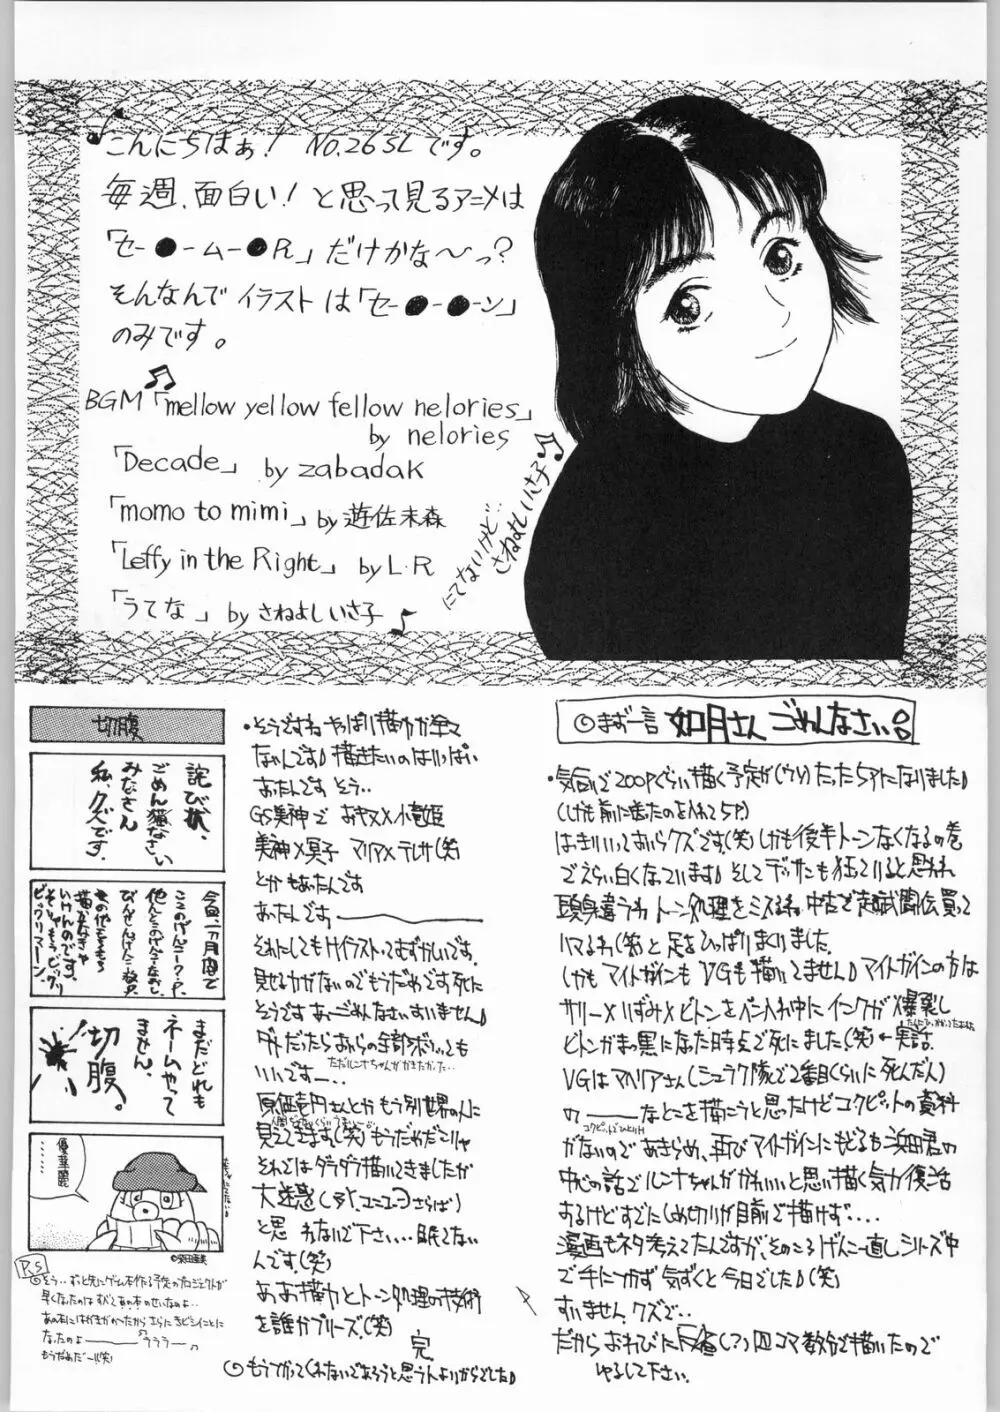 こんにちはぁ! NO.26SLです。
毎週、面白い!と思って見るアニメは
「セー●ームー●R」だけかな〜っ?
そんなんでイラストは「セー●ー●ーン」
のみです。
BGM「mellow yellow fellow nelories」
by nelories
「Decade」 by zabadak
「momo to mimi」by 遊佐未森
「Leffy in the Right」 by L・R
「うてな」by さねよしいさ子
にてないけど…
さねよしいさ子
◎まず一言 如月さん ごめんなさい
・気合いで200Pぐらい描く予定が(ウソ)たった5Pになりました♪
(しかも前に送ったのを入れて5P)
はっきりいっておいらクズです。(笑)しかも後半トーンなくなるの巻
でえらい白くなっています♪そしてデッサンも狂っていると思われ
頭身違うわトーン処理をミスるわ中古で超武闘伝買って
ハマるわ(笑)と足をひっぱりまくりました。
しかもマイトガインもVGも描いてません♪マイトガインの方は
サリー×いずみ×ビトンをペン入れ中にインクが爆裂し
ビトンがまっ黒になった時点で死にました。(笑)←実話
VGはマベリアさん(シュラク隊で2番目くらいに死んだ人)
の――なとこを描こうと思たけどコクピットの資料
コクピットでひとりH
がないのであきらめ、再びマイトガインにもどるも浜田君の
中心の話でルンナちゃんがかわいいと思い描く気力復活
あるけどすでにしめ切りが目前で描けず・・・・
漫画もネタ考えてたんですが、そのころげんこー直しシリーズ中
で手につかず気ずくと今日でした♪(笑)
すいません。クズで・・
だからおわびに(?)四コマ数分で描いたので
ゆるして下さい。
・そうですねやっぱり描力が全て
なんです♪描きたいのはいっぱい
あたんです そう・・
GS美神で おキヌ×小竜姫
美神×冥子 マリア×テレサ(笑)
とかもあったんです
あったんです――
それにしてもHイラストってむずかしいです。
見せる力がないのでもうだめです死に
そうですあーごめんなさいすいません♪
ダメだったらおいらの全部ボツっても
いいですー・・
ただルンナちゃんがかきたかった・・
原価壱円さんとかもう別世界の人に
見えてきます(笑)もうだめだこりゃ
それではダラダラ描いてきましたが
大迷惑
と思わないで下さい・・・・眠くてない
んです。(笑)
ああ描力とトーン処理の技術
を誰かプリーズ。(笑)
完
◎もうつかってくれないであろうと思う人よりからでした♪
切腹
詫び状、
ごめん猫なさい
みなさん
私、クズです。
今回、一カ月間で
ここのげんこーク・P、
ビックリマーン。
まだどれも
ネームやって
ません。
切腹。
優華麗
……
©柴田亜美
P.S
◎そう・・ずっと先にゲームを作る予定のプロジェクトが
早くなったのはすべてあの本のせいなのよ・・
あの本にはがきがのったからさらにきびしいことに
なったのよ――♪ララララ――♪
もうだめだ〜!!(笑)